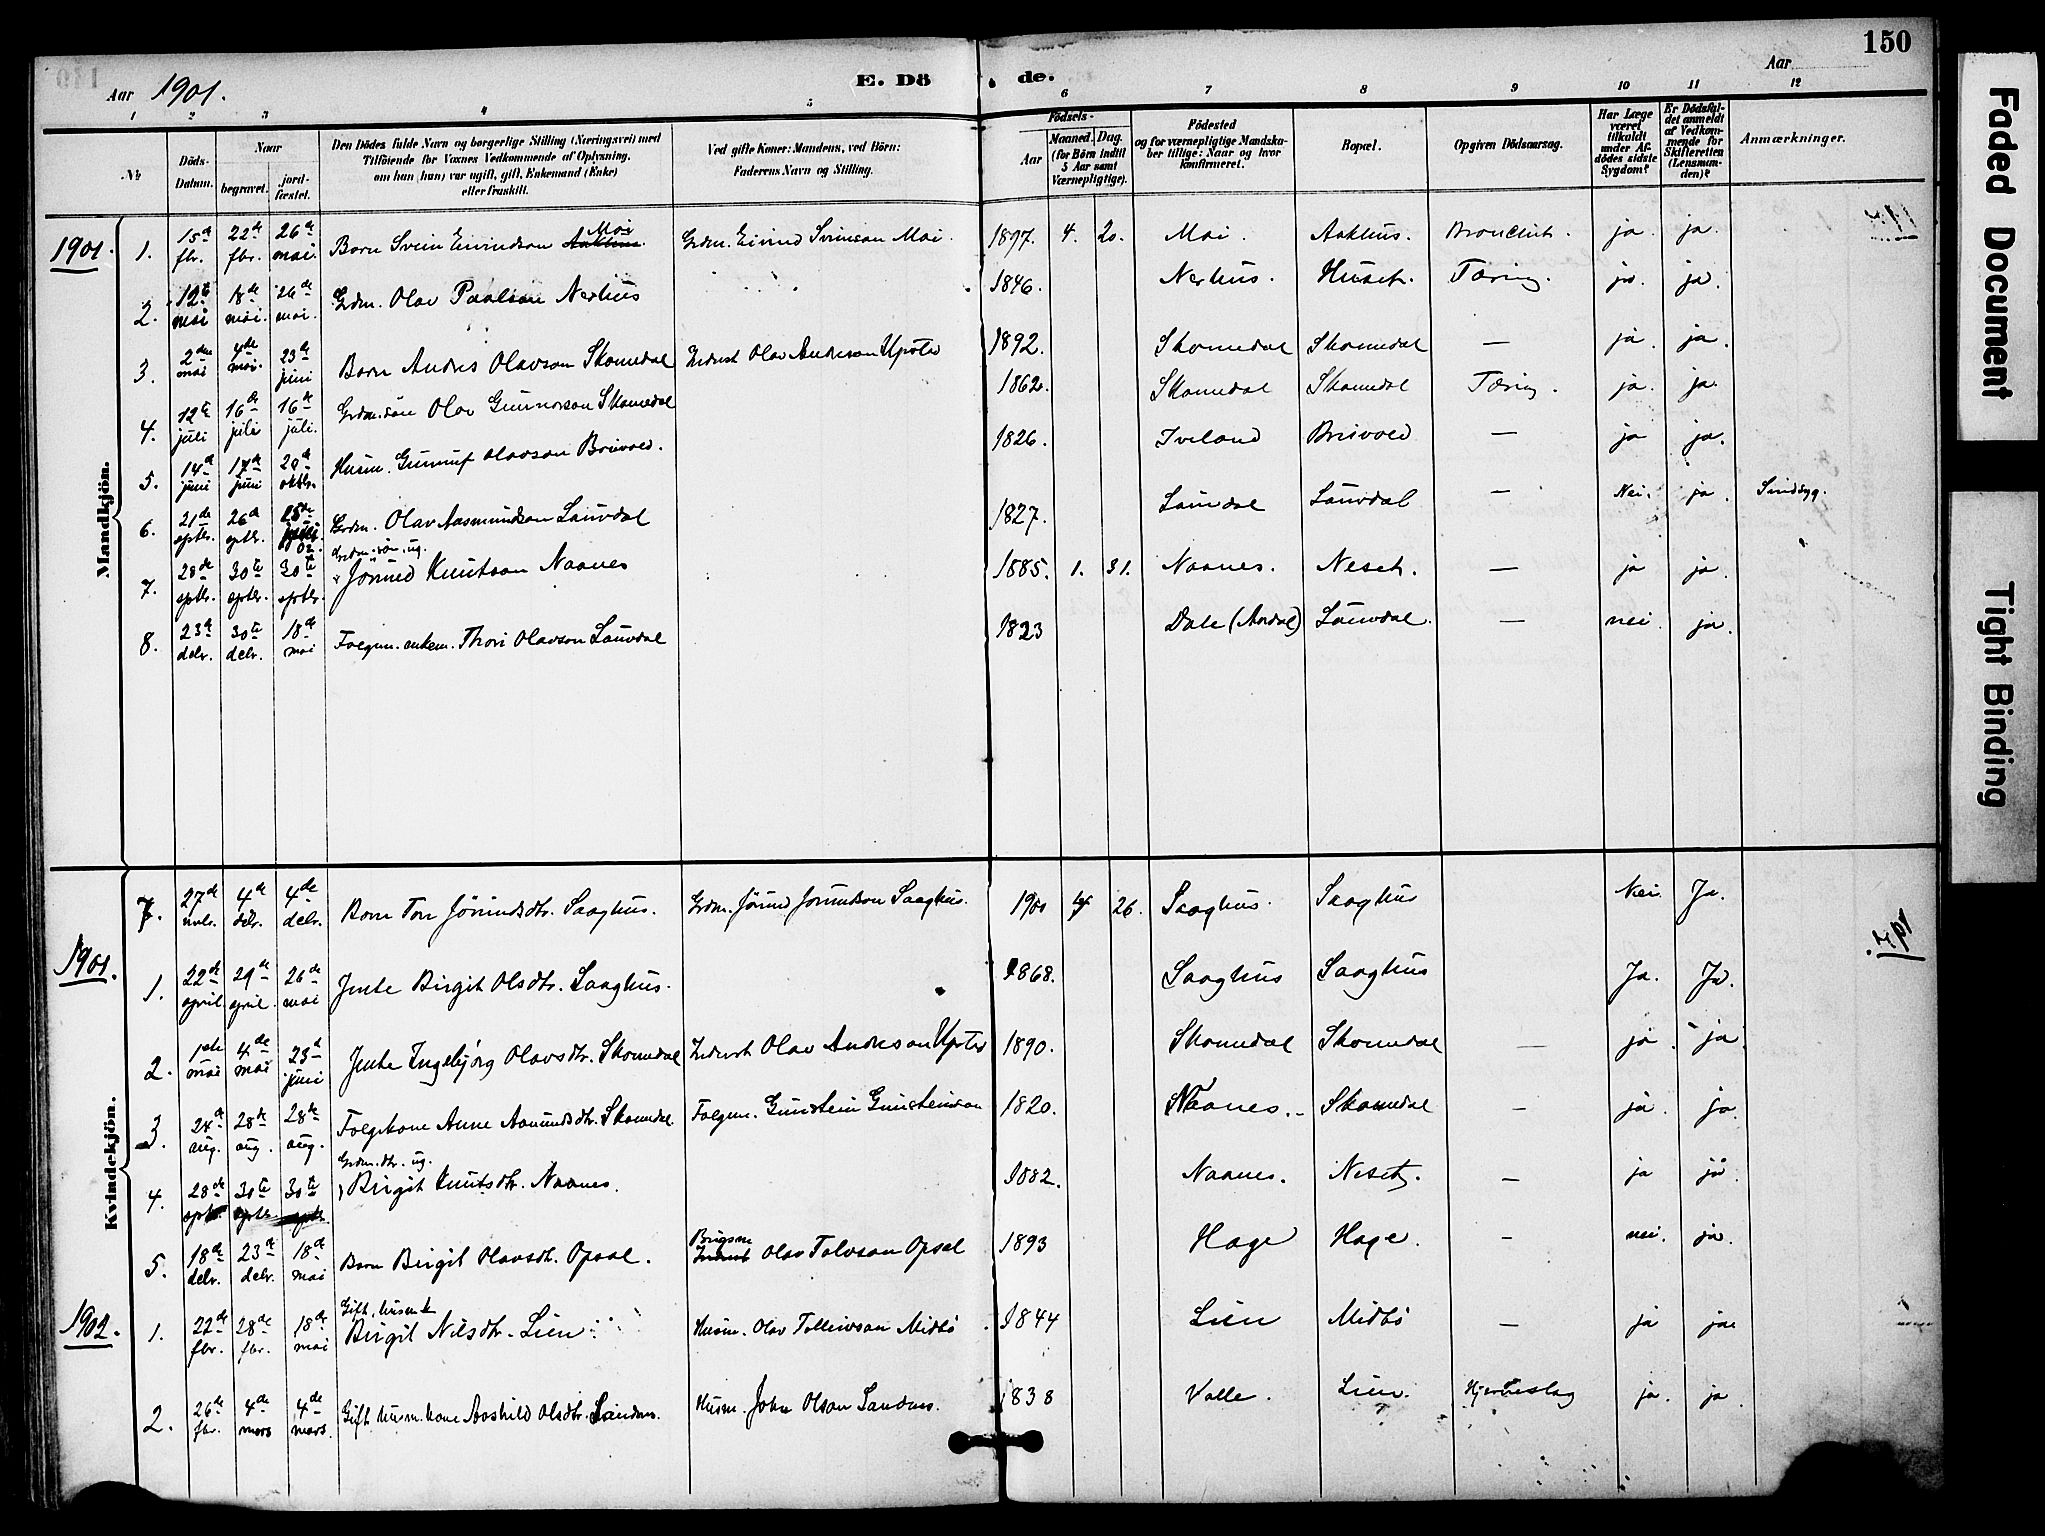 150
Aar 1901.
E. Dö
de.
Aar
1 2 3 4 5 6 7 8 9 10 11 12
№
Döds-Datum.
Naar
begravet.
jord-fæstet.
Den Dödes fulde Navn og borgerlige Stilling (Næringsvei) med
Tilföiende for Voxnes Vedkommende af Oplysning,
om han (hun) var ugift, gift, Enkemand (Enke)
eller fraskilt.
Ved gifte Koner: Mandens, ved Börn:
Faderens Navn og Stilling.
Födsels-
Aar
Maaned. Dag.
(for Börn indtil
5 Aar samt
Værnepligtige).
Födested
og for værnepligtige Mandska-
ber tillige: Naar og hvor
konfirmeret.
Bopæl.
Opgiven Dödsaarsag.
Har Læge
været
tilkaldt
under Af-
dödes sidste
Sygdom?
Er Dödsfal-
det anmeldt
af Vedkom-
mende for
Skifteretten
(Lensman-
den)?
Anmærkninger.
Mandkjön.
1901. 1. 15de fbr. 22de fbr. 26de mai. Barn Svein Eivindson Moi Gdm. Eivind Sveinson Moi. 1897. 4. 20. Moi. Aakhus. Bronchit. ja. ja.
2. 12te mai 18de mai. 26de mai. Gdm. Olav Paalson Nerhus 1846. Nerhus. Huset. Tæring. ja. ja.
3. 2den mai 4de mai. 23de juni Barn Andres Olavson Skomedal Inderst Olav Andreson Upstad 1892. Skomedal Skomedal — ja. ja.
4. 12te juli 16de juli 16de juli. Grdm.sön Olav Gunnarson Skomedal 1862. Skomedal Skomedal Tæring. ja. ja.
5. 14de juni 17de juni 20de oktbr. Husm. Gunnuf Olavson Brüvold. 1826. Iveland Brüvold — ja ja.
6. 21de sptbr. 26de sptbr. 18de 02. Grdm. Olav Aasmundson Lauvdal 1827. Lauvdal Lauvdal — Nei. ja. Sindsyg.
7. 28de sptbr. 30te sptbr. 30te sptbr. Grdm.sön. ug. Jörund Knutson Naanes 1885. 1. 31. Naanes. Neset. — ja ja.
8. 23de debr. 30te debr. 18de mai Folgm. enkem. Thori Olavson Lauvdal 1823 Dale (Ardal) Lauvdal. — nei. ja.
Kvindekjön.
7. 27de nvbr. 4de debr. 4de debr. Barn Ton Jörundsdtr. Saaghus. Grdm. Jörund Jorundson Saaghus. 1900 4 26. Saaghus. Saaghus Nei. Ja.
1901. 1. 22de april 29de april. 26de mai Jente Birgit Olsdtr. Saaghus. 1868. Saaghus Saaghus Ja. Ja.
2. 1ste mai 4de mai 23de juni Jente Ingebjörg Olavsdtr. Skomedal Inderst Olav Andreson Upstad 1890. Skomedal Skomedal — ja. ja.
3. 24de aug. 28de aug. 28de aug. Folgekone Anne Aanundsdtr. Skomedal. Folgm. Gunstein Gunsteinson 1820. Naanes. Skomedal — ja. ja.
4. 28de sptbr. 30te sptbr. 30te sptbr. Grdm.dtr. ug. Birgit Knutsdtr. Naanes. 1882. Naanes. Neset. — ja ja.
5. 18de debr. 23de debr. 18de mai Barn Birgit Olavsdtr. Opsal. Brugsm Inderst Olav Talvson Opsal 1893 Hage Hage. — nei. ja.
1902. 1. 22de fbr. 28de fbr. 18de mai Gift. husm.k. Birgit Nilsdtr. Lien Husm. Olav Tollevson Midbö 1844 Lien Midbö — ja ja
2. 26de fbr. 4de mars 4de mars. Gift husm.kone Aashild Olsdtr. Sandnes. Husm. John Olson Sandnes. 1838 Valle. Lien. Hjerneslag ja. ja
Faded Document
Tight Binding